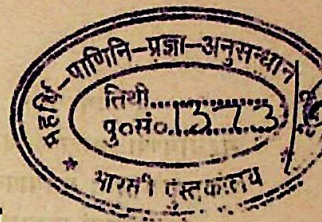 महर्षि-पाणिनि-प्रज्ञा-अनुसन्धान
तिथी..............
पु०सं०.1373
* भारती पुस्तकालय